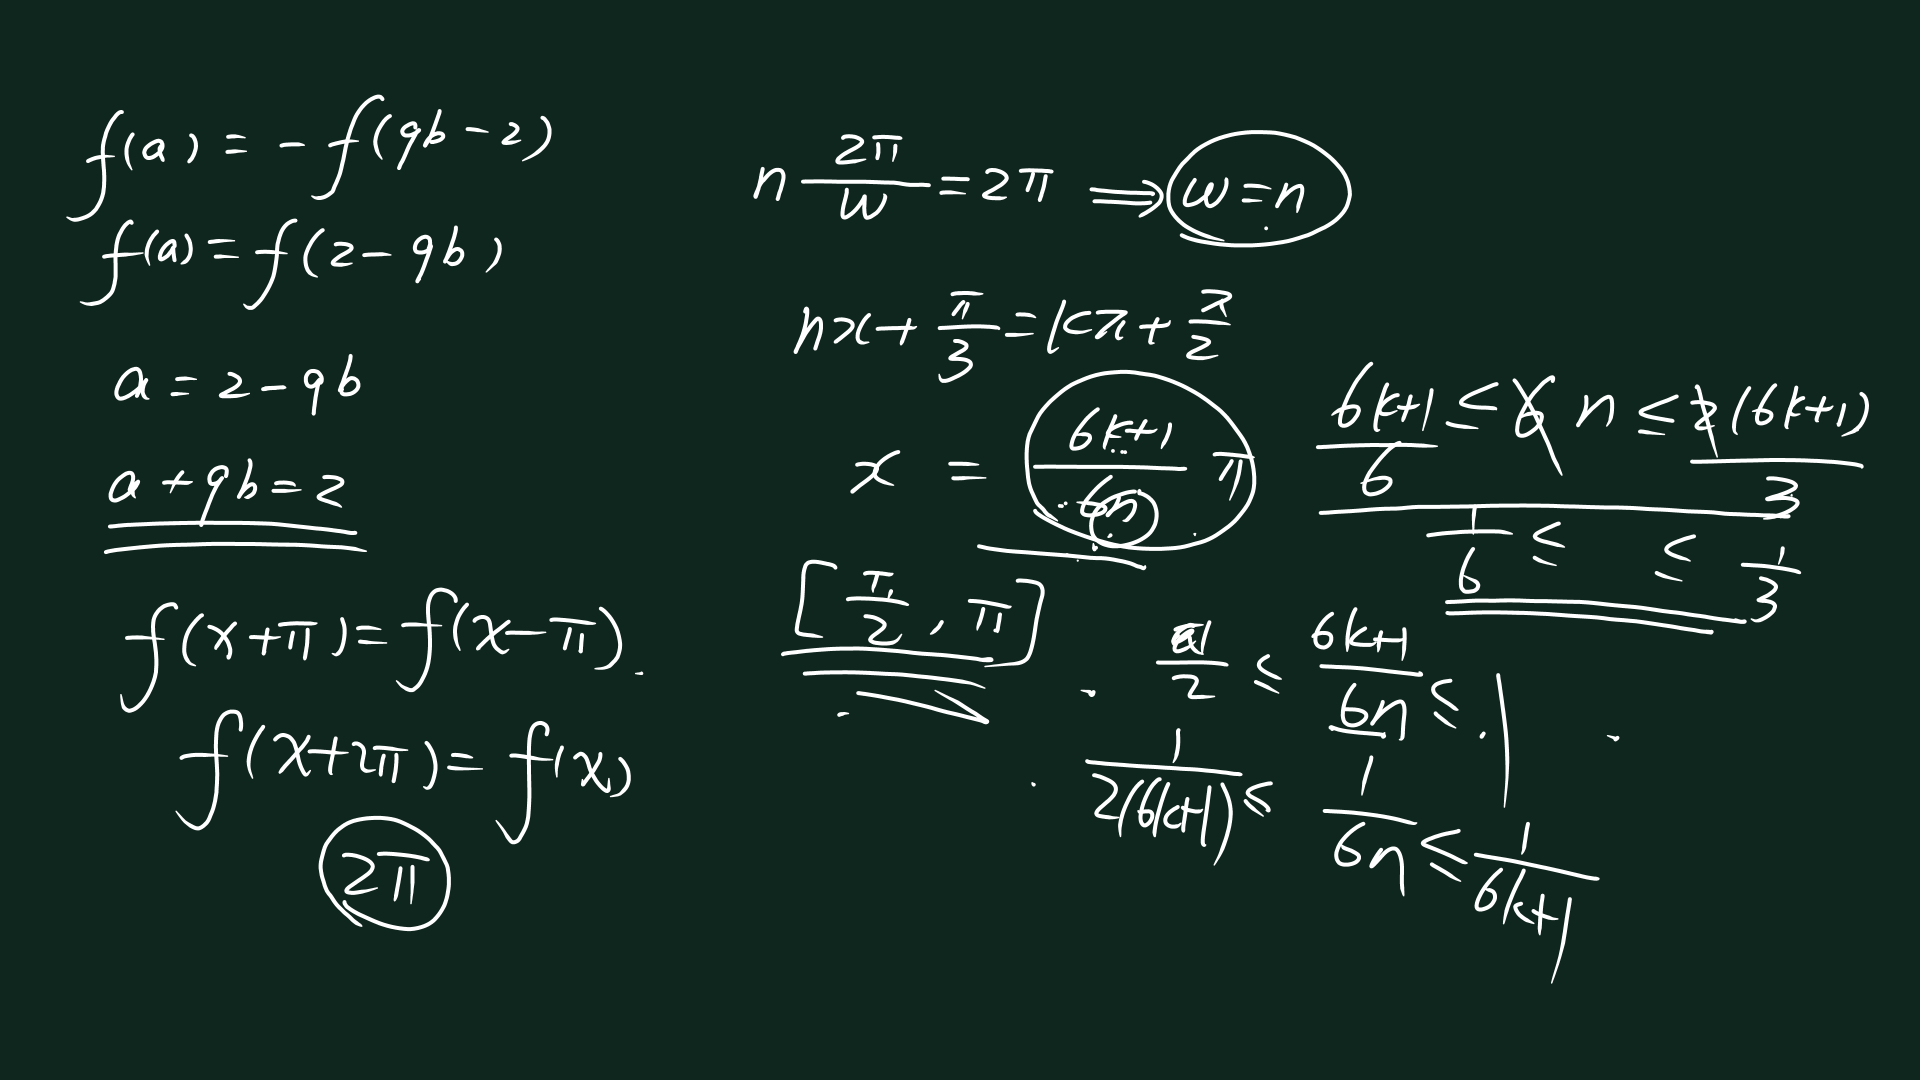 f(a) = -f(9b-2)
f(a) = f(2-9b)
a = 2-9b
a+9b=2
f(x+π)=f(x-π).
f(x+2π)=f(x)
2π
n 2π/w = 2π ⟹ w=n
nx+π/3=kπ+π/2
x = (6k+1)/(6n) π
[π/2, π]
(6k+1)/6 ≤ n ≤ (6k+1)/3
1/6 ≤ ≤ 1/3
1/2 ≤ (6k+1)/(6n) ≤ 1
1/(2(6k+1)) ≤ 1/(6n) ≤ 1/(6k+1)